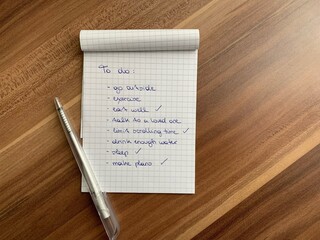 To do:
- go outside
- exercise
- eat well ✓
- talk to a loved one
- limit scrolling time ✓
- drink enough water
- sleep ✓
- make plans ✓